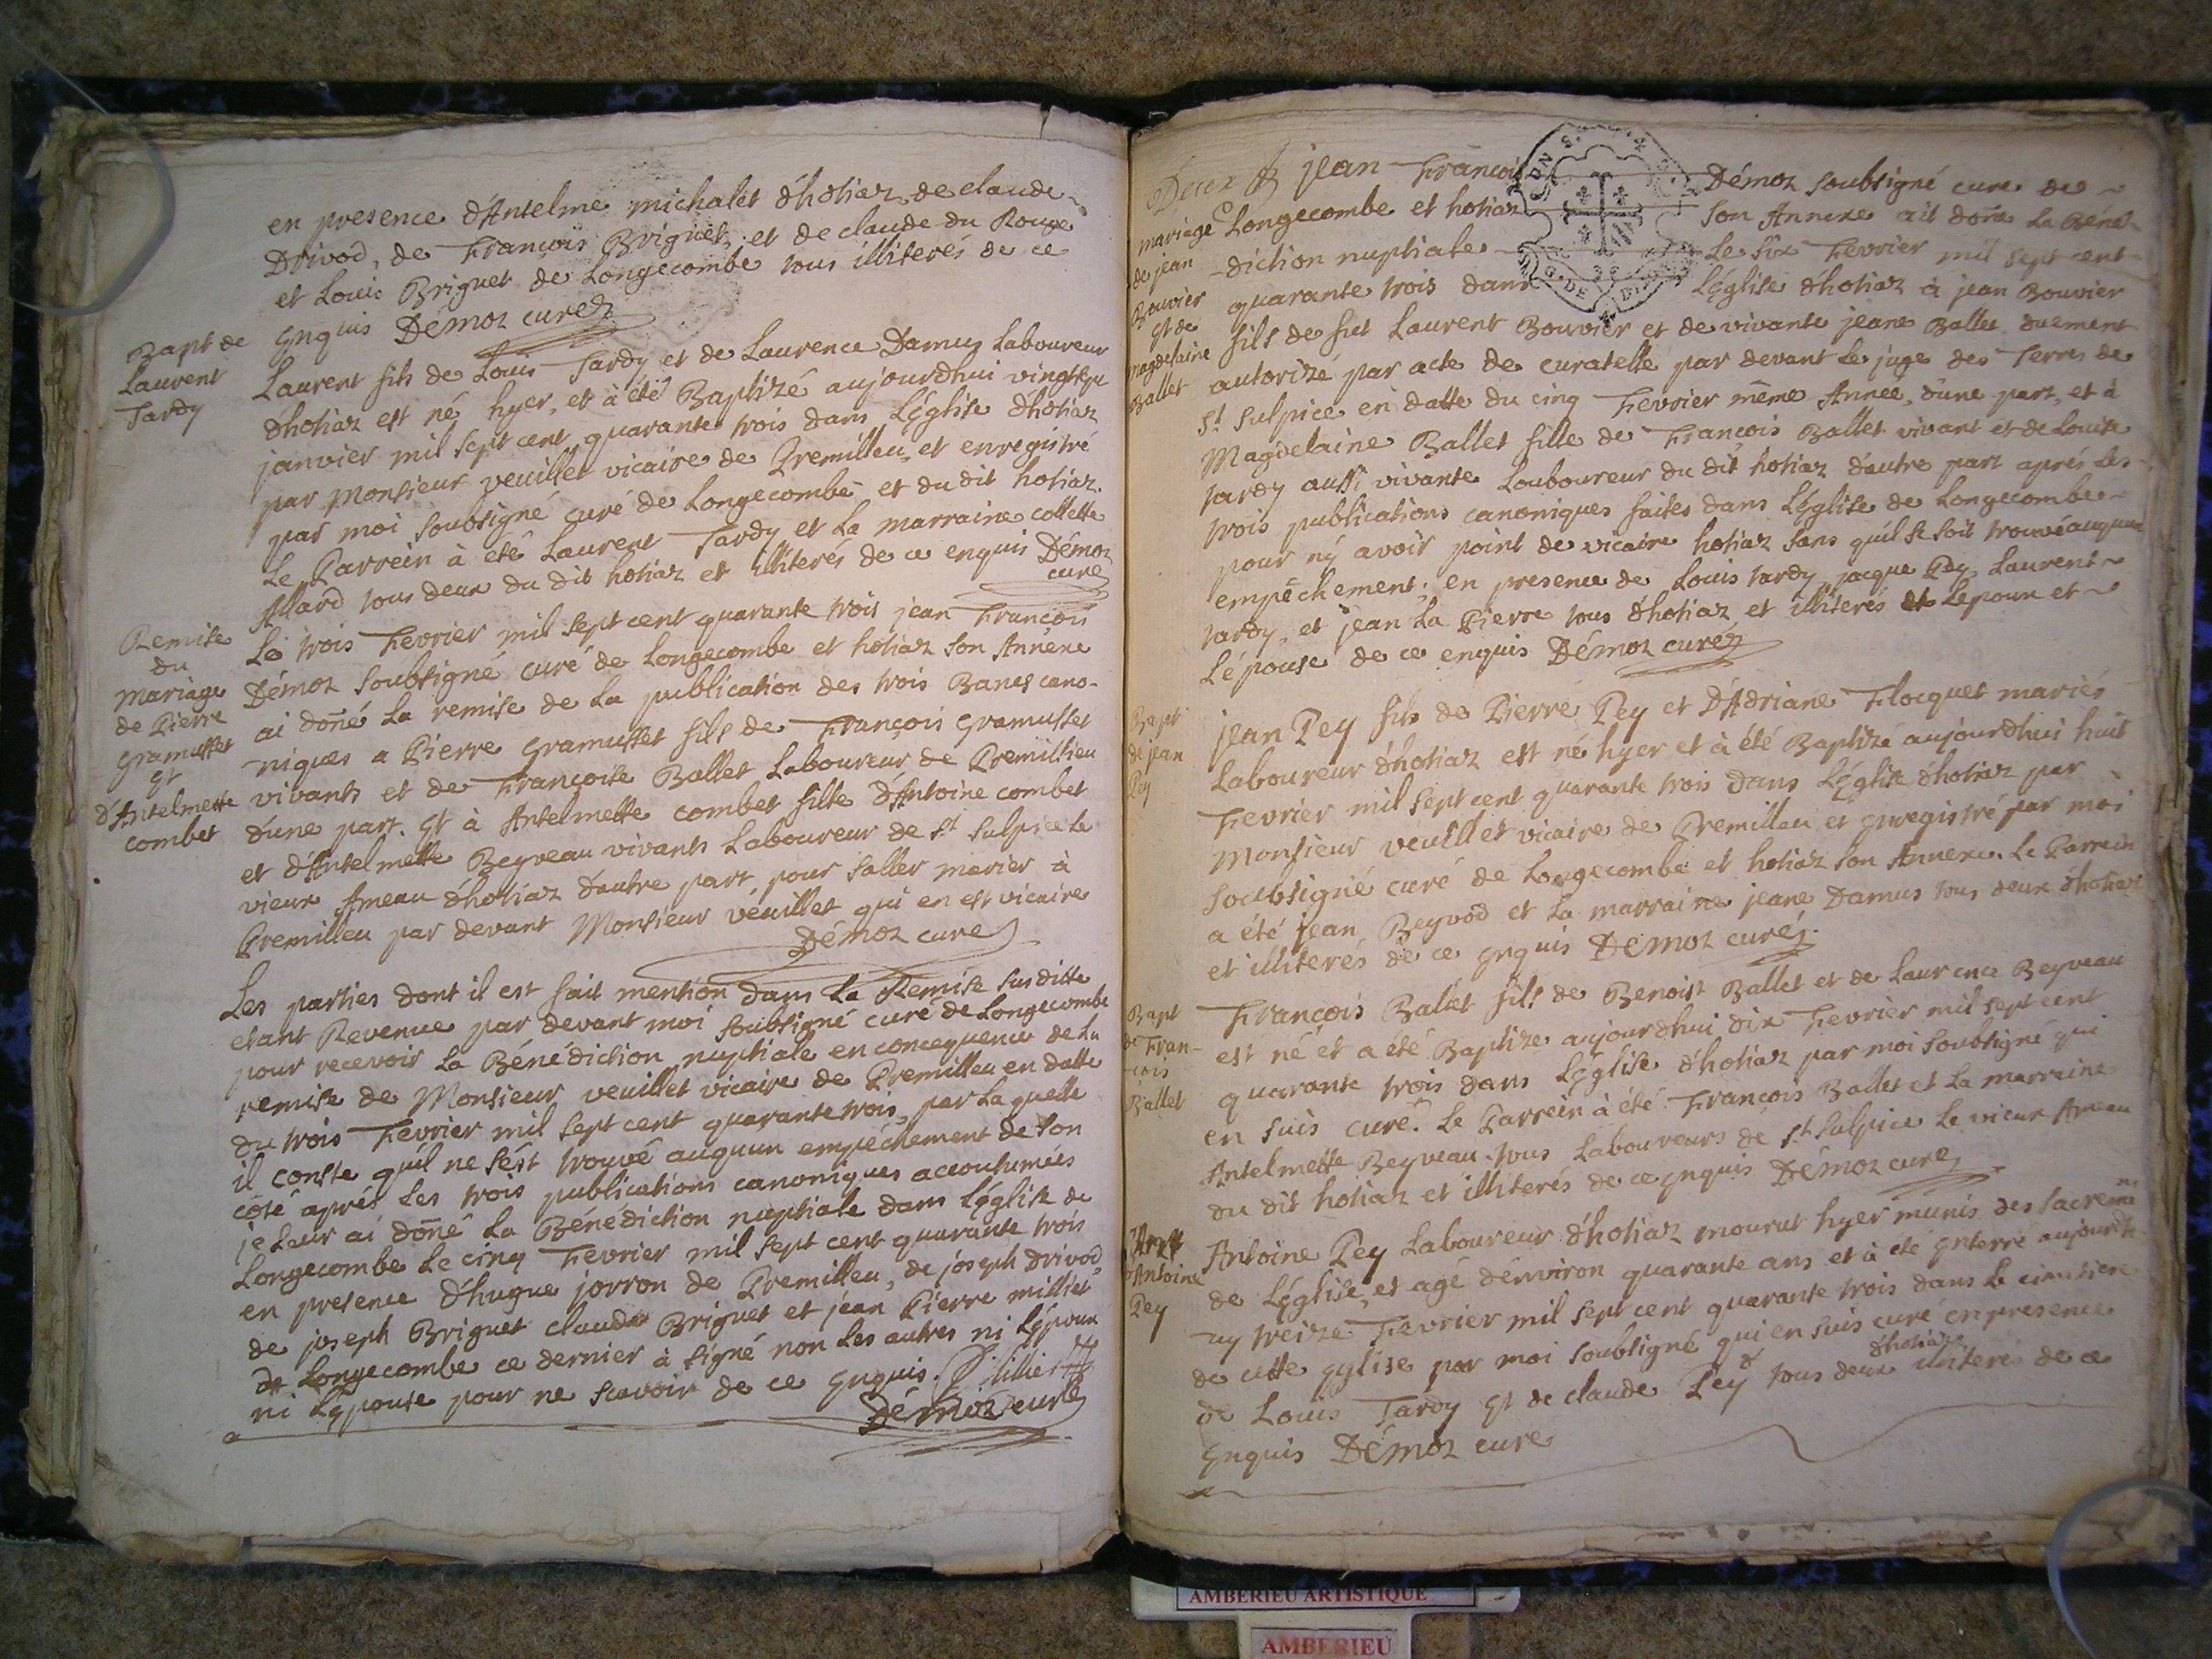 en presence d'Antelme michalet d'hotiaz de claude
Drivod, de Francois Briguet, et de claude du Rouge
et Louis Briguet de Longecombe tous illiterés de ce
Enquis Démoz curé
Bapt de
Laurent
Tardy
Laurent fils de Louis Tardy et de Laurence Damus Laboureur
d'hotiaz est né hyer, et à été Baptizé aujourdhui vingtsept
janvier mil sept cent quarante trois dans L'église d'hotiaz
par Monsieur veuillet vicaire de Premilleu, et enregistré
par moi soubsigné curé de Longecombe et du dit hotiaz.
Le Parrein à été Laurent Tardy et La marraine collette
Allard tous deux du dit hotiaz et illiterés de ce enquis Démoz
curé
Remise
du
mariage
de Pierre
Gramusset
Et
d'Antelmette
combet
Le trois Fevrier mil sept cent quarante trois jean Francois
Démoz soubsigné curé de Longecombe et hotiaz son Annexe
ai doñé La remise de La publication des trois Bancs cano-
-niques a Pierre Gramusset fils de François Gramusset
vivants et de Françoise Ballet Laboureur de Premillieu
d'une part. Et à Antelmette combet fille d'Antoine combet
et d'Antelmette Beyveau vivants Laboureur de St Sulpice Le
vieux Ameau d'hotiaz d'autre part pour saller marier à
Premilleu par devant Monsieur veuillet qui en est vicaire
Démoz curé
Les parties dont il est fait mention dans La Remise susditte
etant Revenue par devant moi soubsigné curé de Longecombe
pour recevoir La Bénédiction nuptiale en concequence de La
remise de Monsieur veuillet vicaire de Premilleu en datte
du trois Fevrier mil sept cent quarante trois, par La quelle
il conste qu'il ne s'est trouvé auquun empéchement de son
côté aprés Les trois publications canoniques accoutumées
je Leur ai doñé La Bénédiction nuptiale dans L'église de
Longecombe Le cinq Fevrier mil sept cent quarante trois
en presence d'hugue jorron de Premilleu, de joseph drivod
de joseph Briguet claude Briguet et jean Pierre milliet
de Longecombe ce dernier à signé non Les autres ni L'époux
ni L'epouse pour ne scavoir de ce Enquis. Milliet
Démoz curé
Deux
mariage
de jean
Bouvier
Et de
magdelaine
Ballet
jean Francois Démoz soubsigné curé de
Longecombe et hotiaz son Annexe ait doñé La Béné-
-diction nuptiale Le six Fevrier mil sept cent
quarante trois dans L'église d'hotiaz à jean Bouvier
fils de fut Laurent Bouvier et de vivante jeane Ballet duement
autorizé par acte de curatelle par devant Le juge des Terres de
St Sulpice en datte du cinq Fevrier même Année, d'une part, et à
Magdelaine Ballet fille de François Ballet vivant et de Louise
tardy aussi vivante Louboureur du dit hotiaz d'autre part aprés Les
trois publications canoniques faites dans L'église de Longecombe
pour n'y avoir point de vicaire hotiaz sans qu'il se soit trouvé auquun
empéchement; en presence de Louis tardy, jacque Pey Laurent
tardy, et jean La Pierre tous d'hotiaz et illiterés et Lepoux et
L'épouse de ce enquis Démoz curé
Bapt
de jean
Pey
jean Pey fils de Pierre Pey et D'Adriane Flocquet mariés
Laboureur d'hotiaz est né hyer et à été Baptizé aujourdhui huit
Fevrier mil sept cent quarante trois dans L'église d'hotiaz par
Monsieur veuillet vicaire de Premilleu et Enregistré par moi
soubsigné curé de Longecombe et hotiaz son Annexe. Le Parrein
a été jean Beyvod et La marraine jeane Damus tous deux d'hotiaz
et illiterés de ce Enquis Démoz curé
Bapt
de Fran-
-cois
Ballet
Francois Ballet fils de Benoist Ballet et de Laurence Beyveau
est né et a été Baptize aujourdhui dix Fevrier mil sept cent
quarante trois dans L'église d'hotiaz par moi soubsigné qui
en suis curé. Le Parrein à été Francois Ballet et La marraine
Antelmette Beyveau tous Laboureurs de St Sulpice Le vieux Ameau
du dit hotiaz et illiterés de ce Enquis Démoz curé
d'Antoine
Pey
Antoine Pey Laboureur d'hotiaz mourut hyer munis des sacremens
de L'église, et agé d'environ quarante ans et à été Enterré aujourd'h
uy treize Fevrier mil sept cent quarante trois dans Le cimitiere
de cette Eglise par moi soubsigné qui en suis curé en presence
de Louis Tardy Et de claude Pey tous deux d'hotiaz illiterés de ce
Enquis Démoz curé
AMBERIEU ARTISTIQUE
AMBERIEU